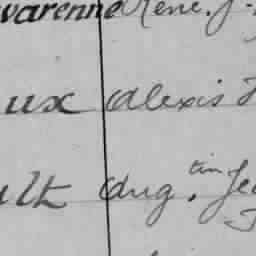 varenne René. J.
ux Alexis
ult Aug.tin Je